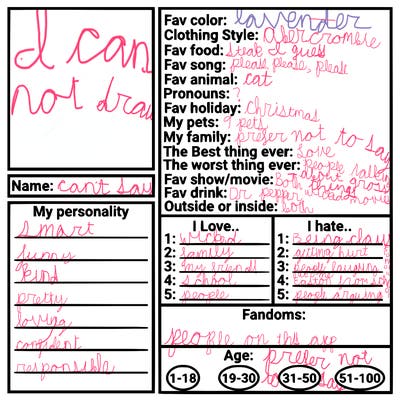 I can
not draw
Name: cant say
My personality
smart
funny
kind
pretty
loving
confident
responsible
Fav color: lavender
Clothing Style: Abercrombie
Fav food: steak I guess
Fav song: please, please, please
Fav animal: cat
Pronouns: ?
Fav holiday: Christmas
My pets: 9 pets
My family: prefer not to say
The Best thing ever: Love
The worst thing ever: People talking about gross things
Fav show/movie: Both
Fav drink: Dr pepper
Outside or inside: both
I Love..
1: wicked
2: family
3: my friends
4: school
5: people
I hate..
1: Being
2: getting hurt
3: people laughing
4:
5: people arguing
Fandoms:
people on this app
Age: prefer not to say
1-18 19-30 31-50 51-100